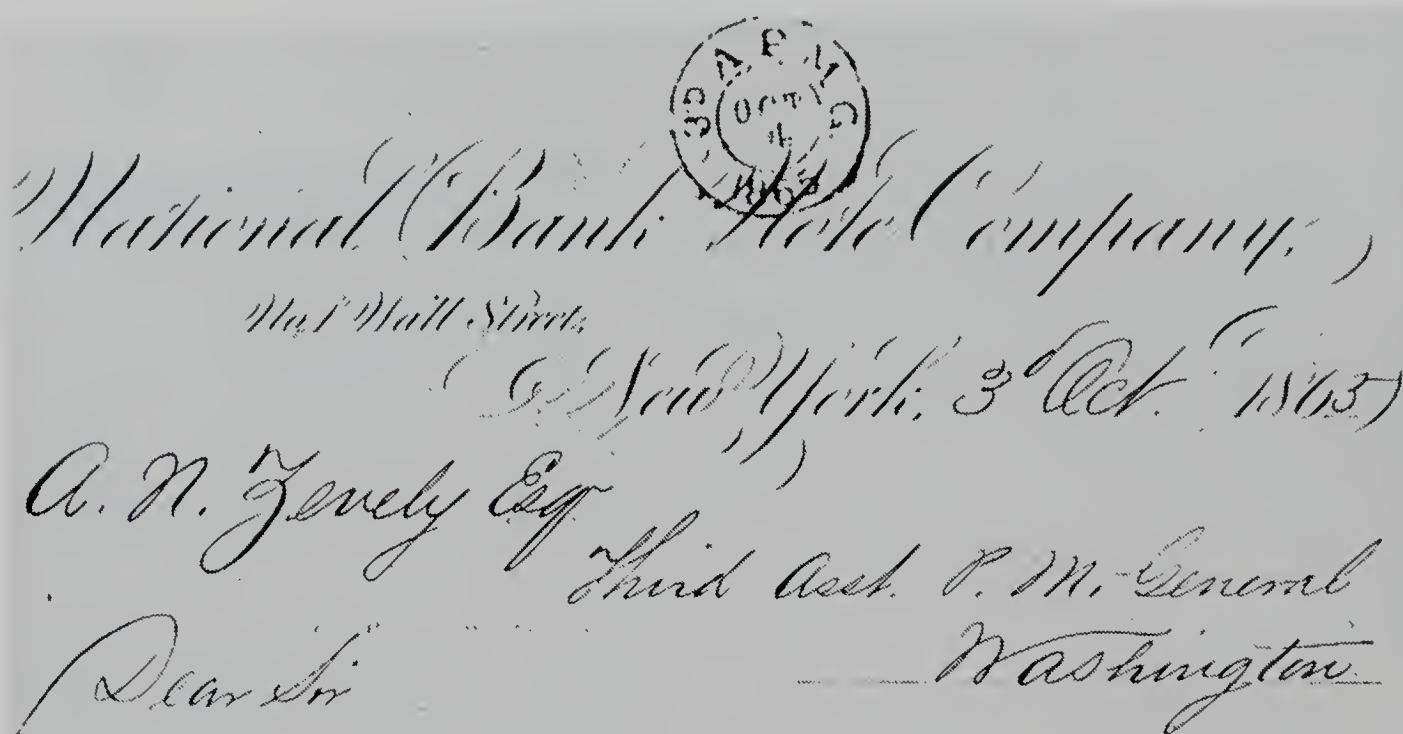 3D A.P.M.G.
OCT
4
National Bank Note Company,
No. 1 Wall Street,
New York, 3d Oct. 1865
A. N. Zevely Esq
Third Asst. P. M. General
Washington
Dear Sir